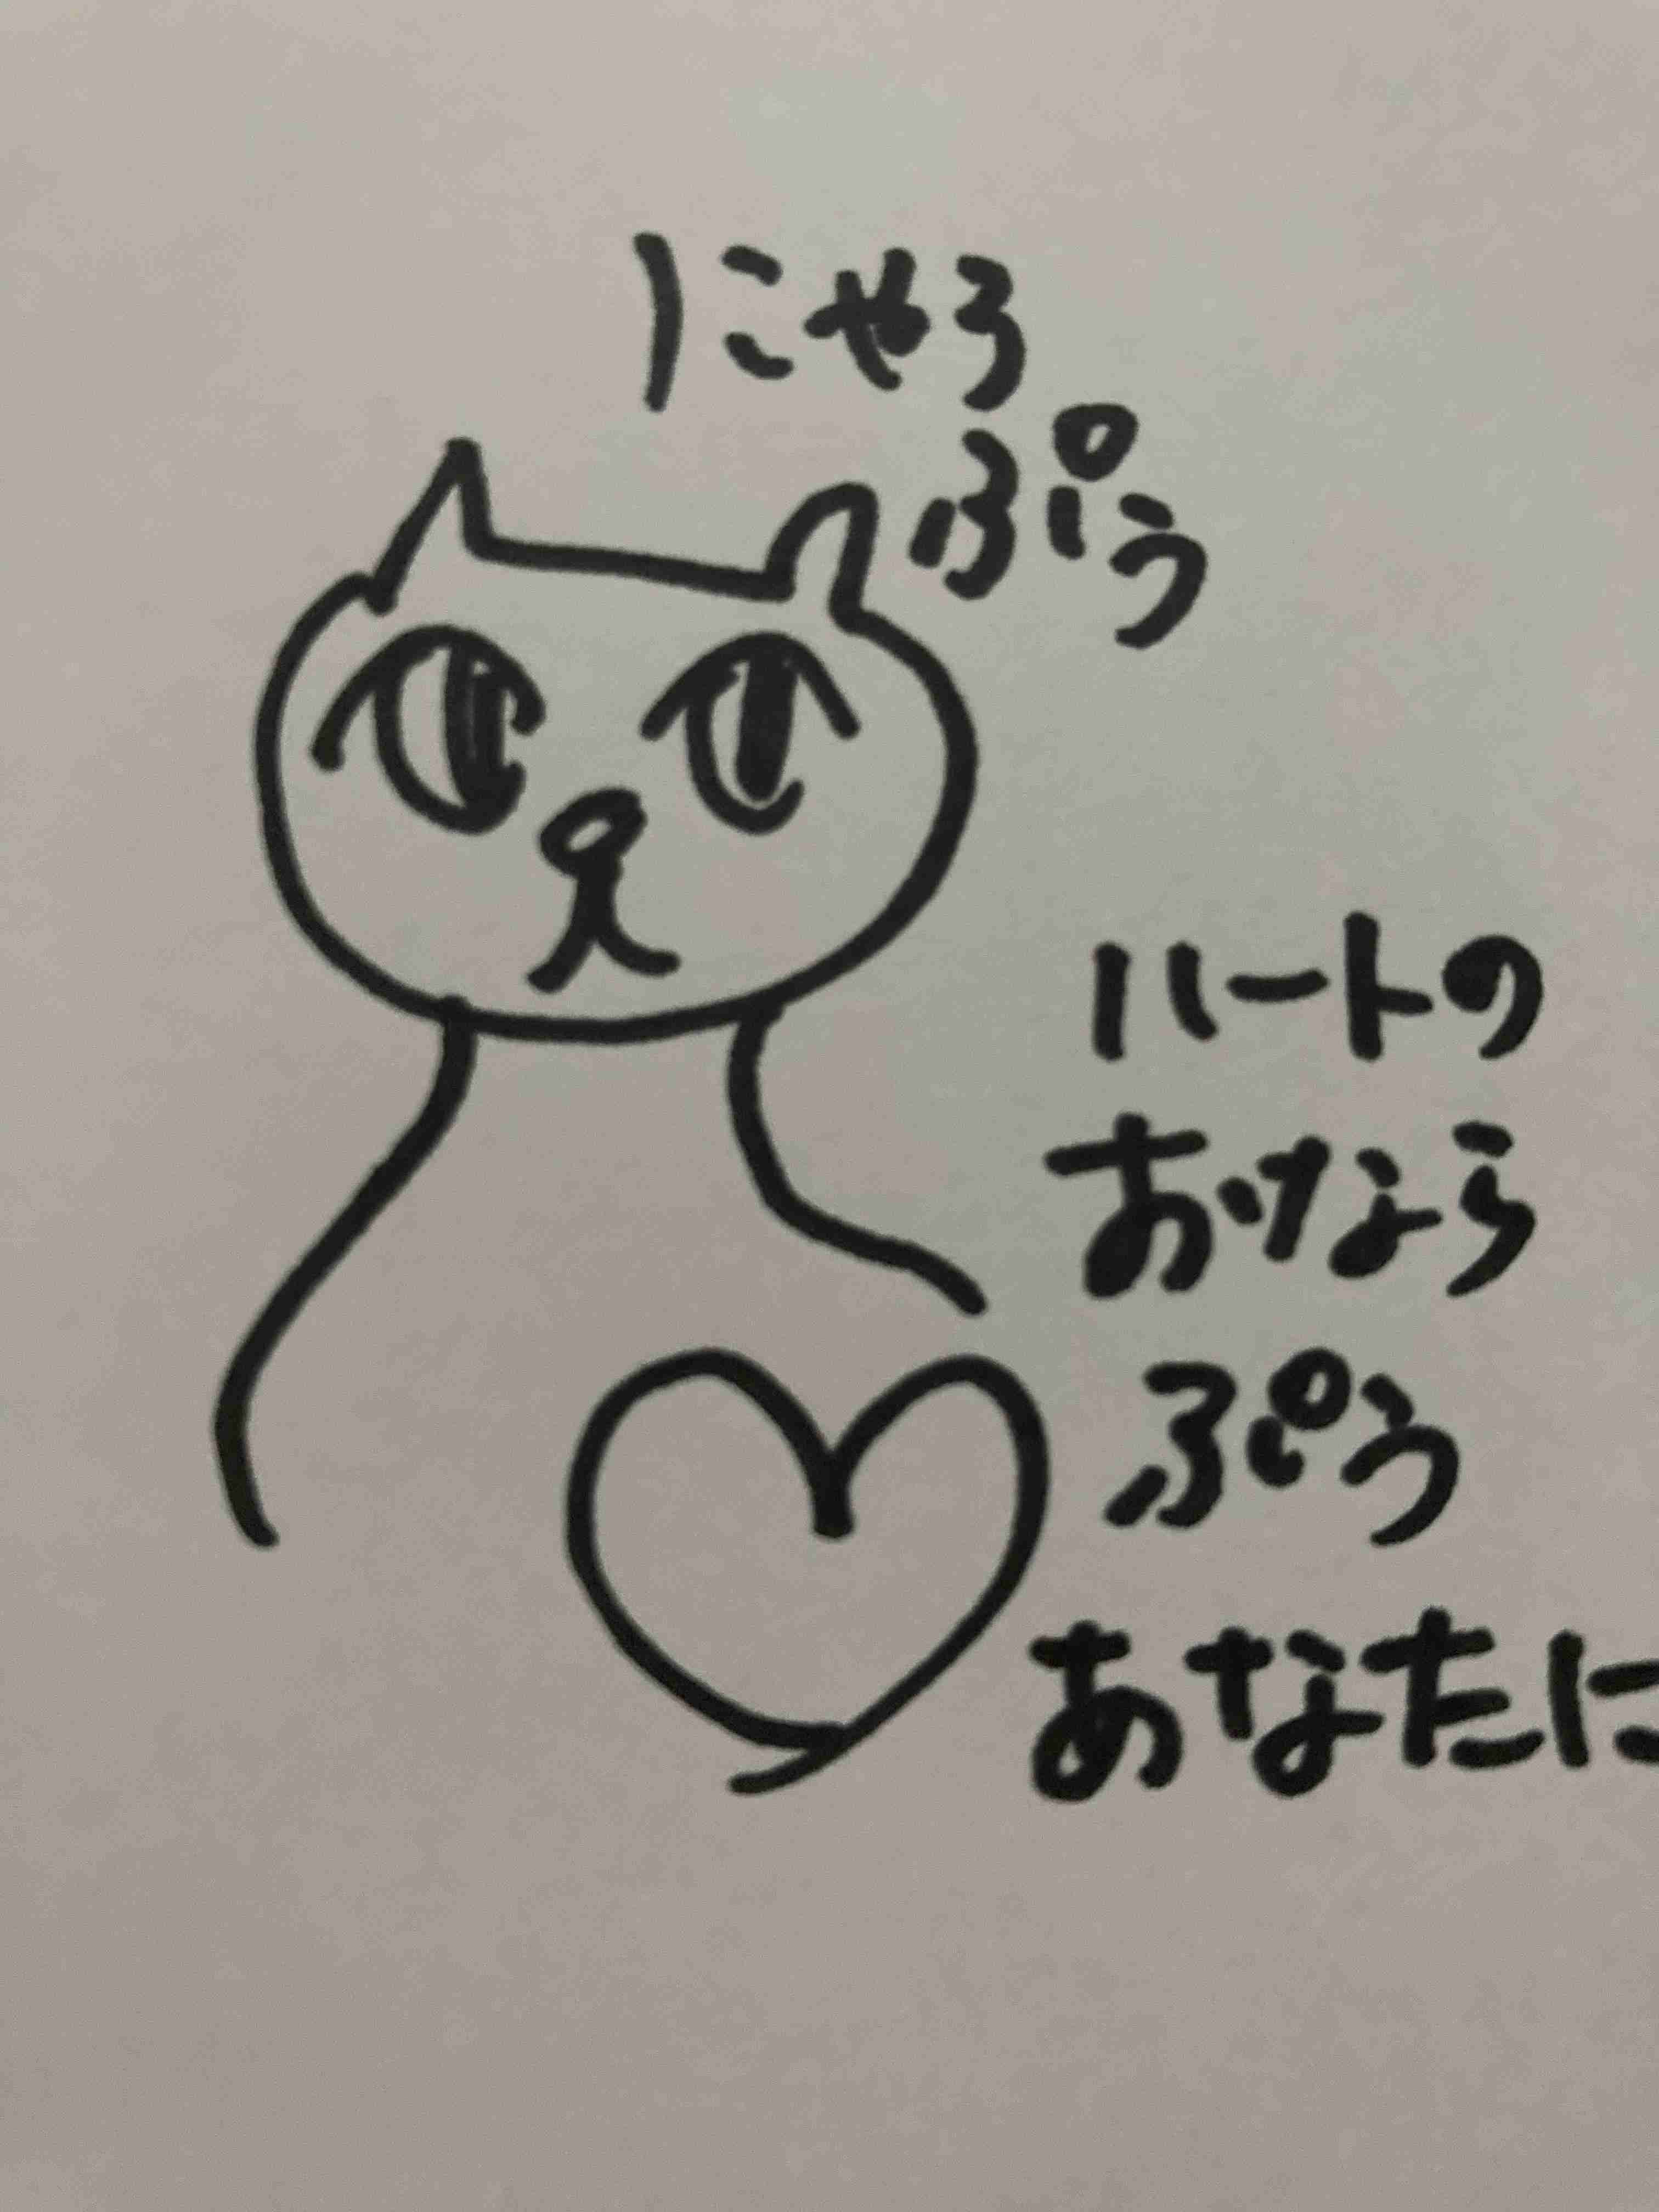 にゃろ
ぷぅ
ハートの
おけなら
ぷぅ
あなたに